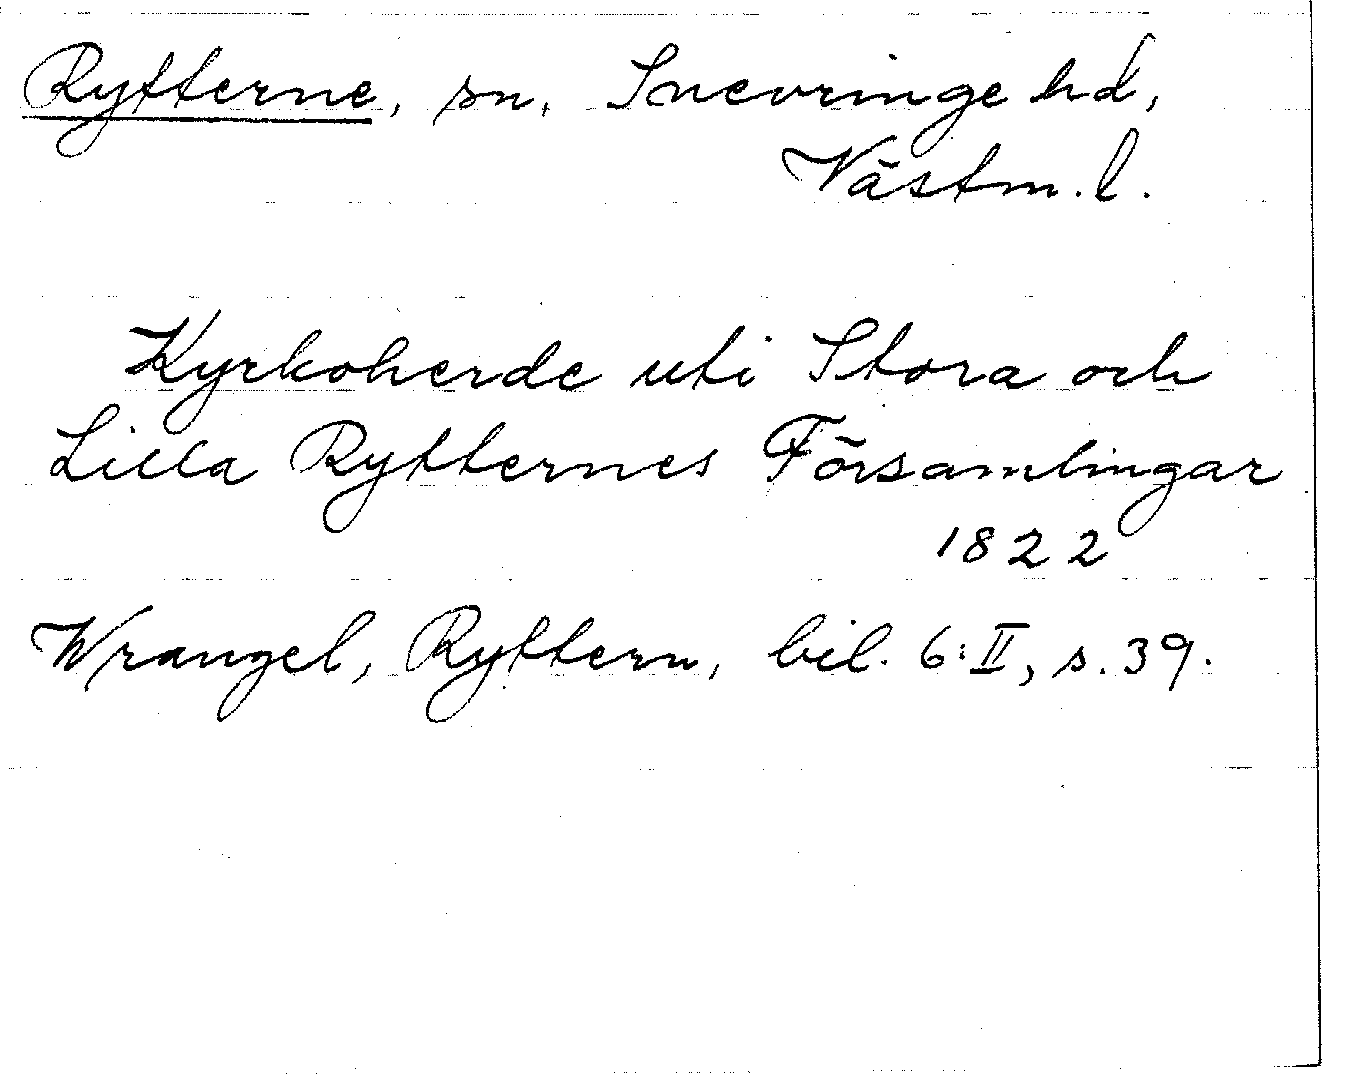 Rytterne, sn, Snevringe hd,
Västm. l.
Kyrkoherde uti Stora och
Lilla Rytternes Församlingar
1822
Wrangel, Ryttern, bil. 6:II, s. 39.